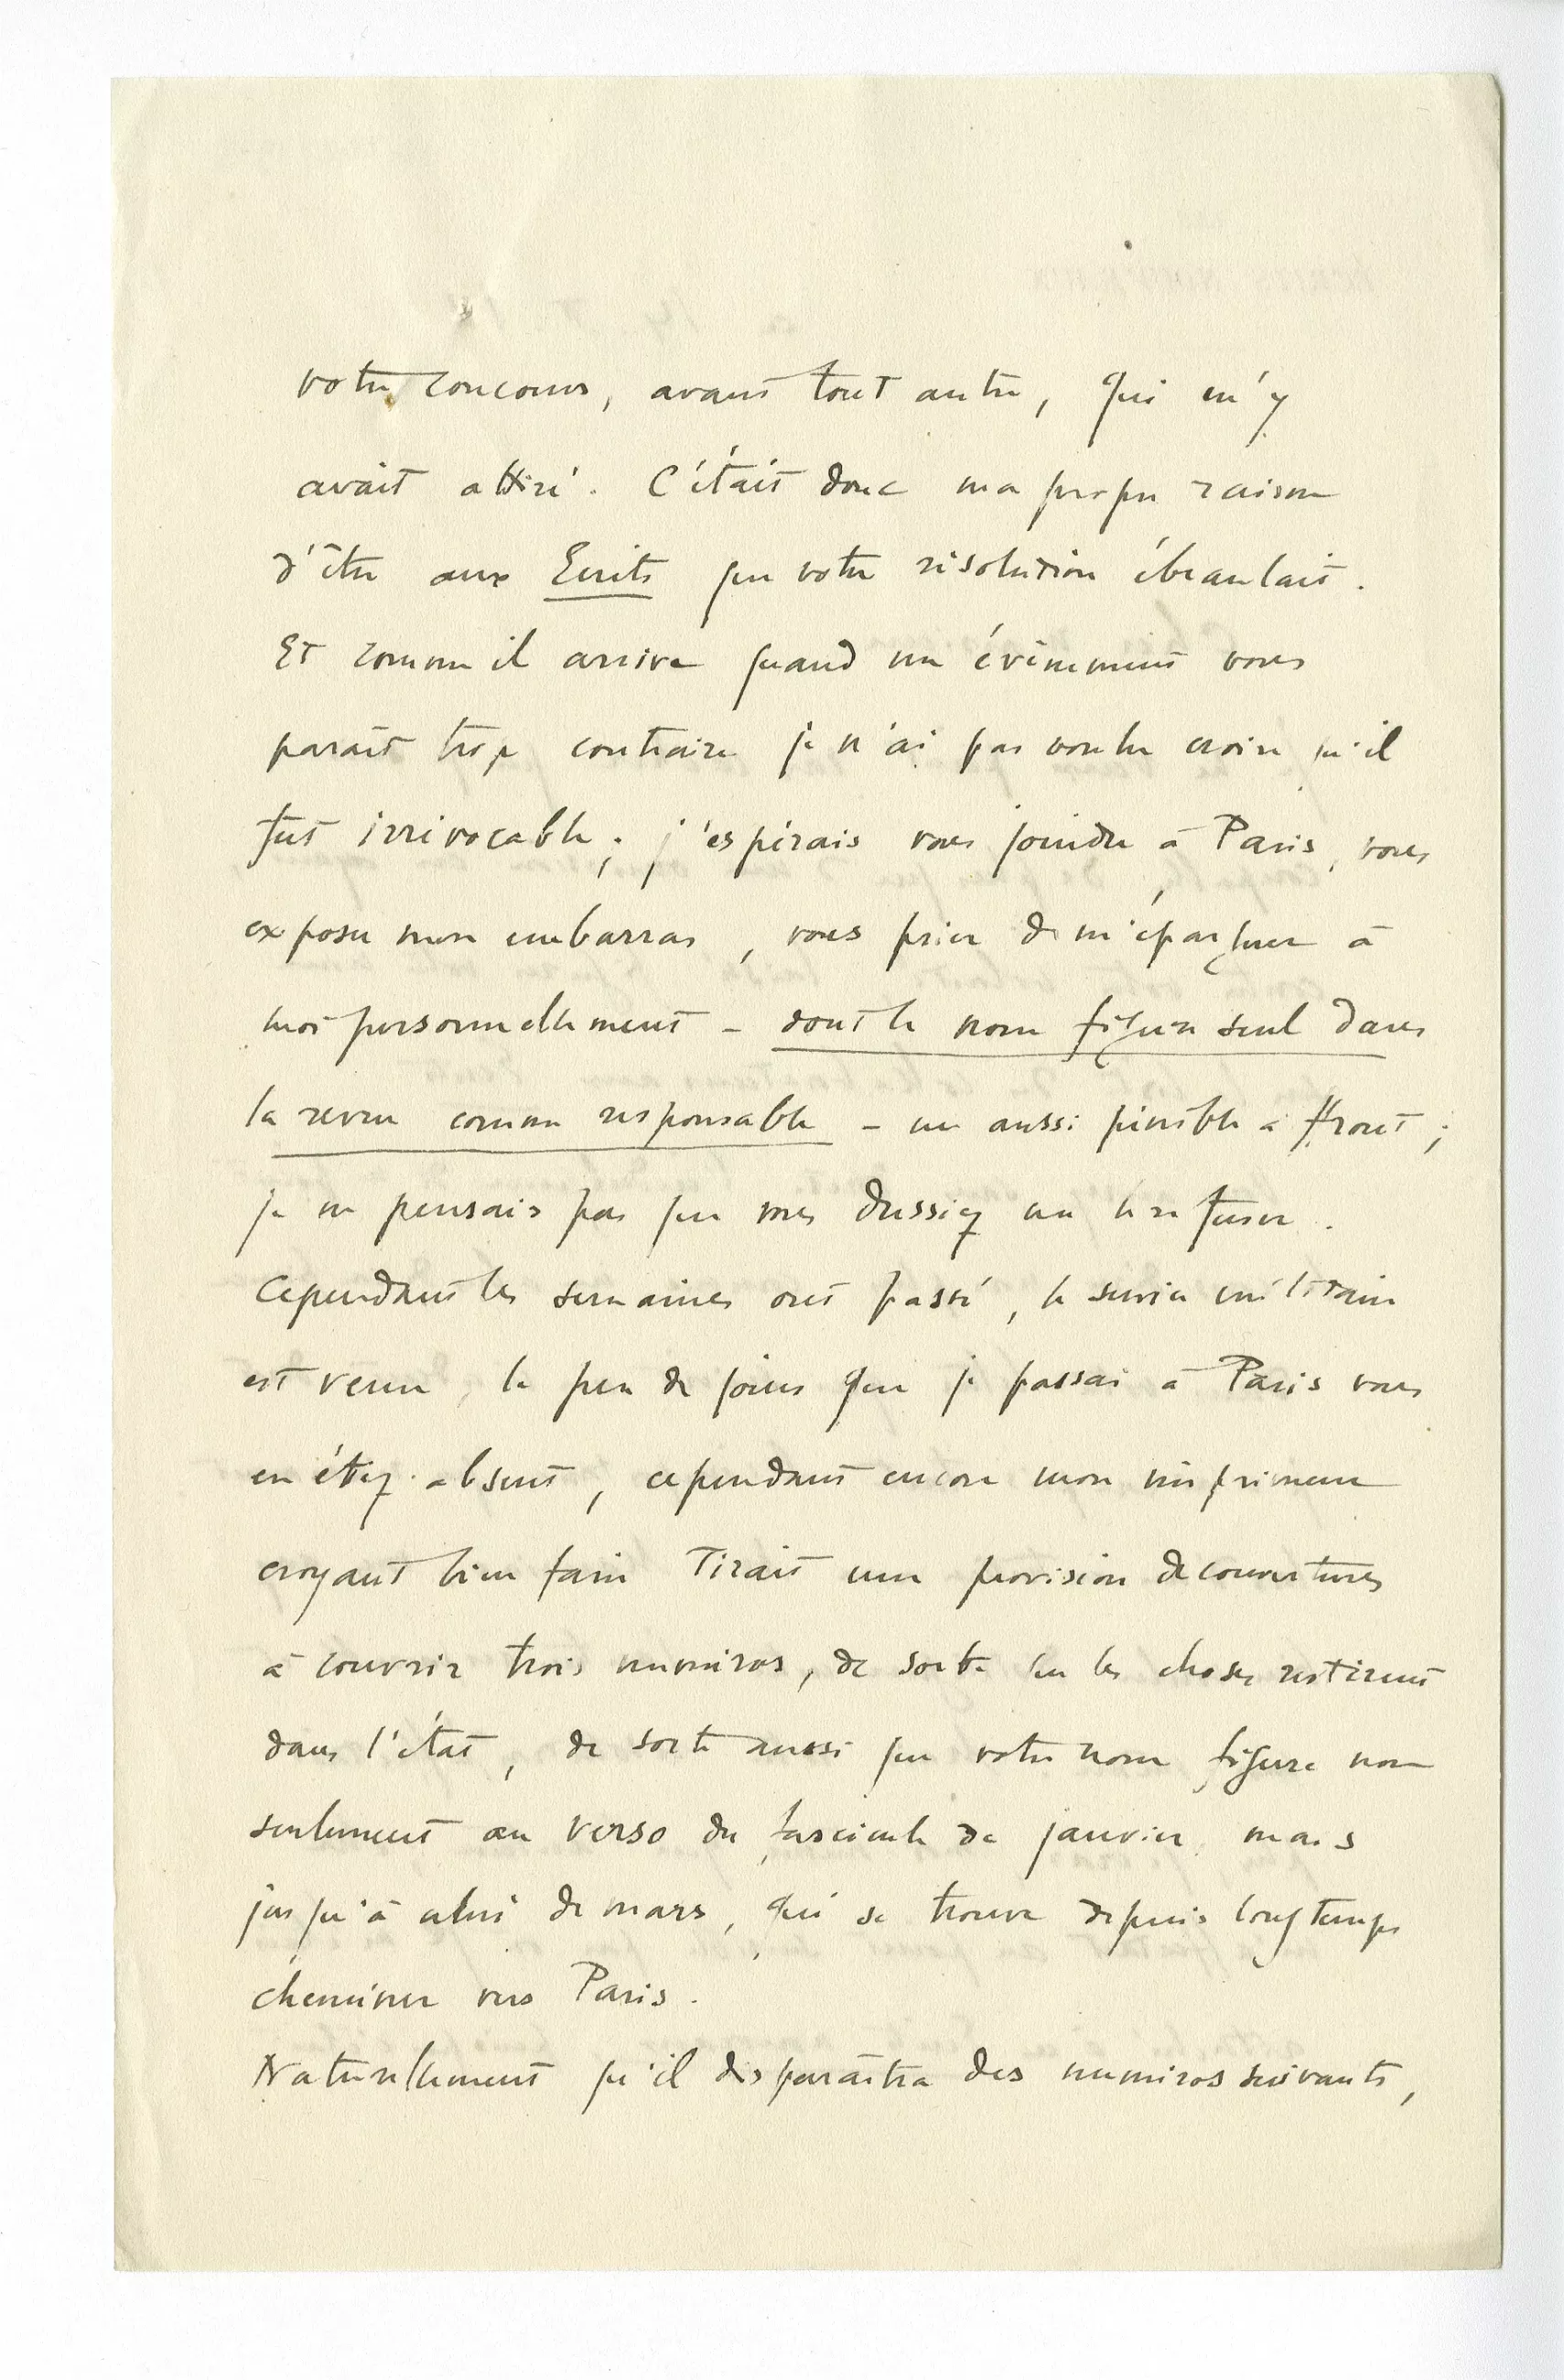 votre concours, avant tout autre, qui m'y
avait attiré. C'était donc ma propre raison
d'être aux Ecrits que votre résolution ébranlait.
Et comme il arrive quand un événement vous
paraît trop contraire je n'ai pas voulu croire qu'il
fut irrévocable ; j'espérais vous joindre à Paris, vous
exposer mon embarras, vous prier de m'épargner à
moi personnellement – dont le nom figure seul dans
la revue comme responsable – un aussi pénible affront ;
je ne pensais pas que vous dussiez me le refuser.
Cependant les semaines ont passé, le service militaire
est venu, le peu de jours que je passai à Paris vous
en étiez absent, cependant encore mon imprimeur
croyant bien faire tirait une provision de couvertures
à couvrir trois numéros, de sorte que les choses restèrent
dans l'état, de sorte aussi que votre nom figure non
seulement au verso du fascicule de janvier, mais
jusqu'à celui de mars, qui se trouve depuis longtemps
cheminer vers Paris.
Naturellement qu'il disparaîtra des numéros suivants,